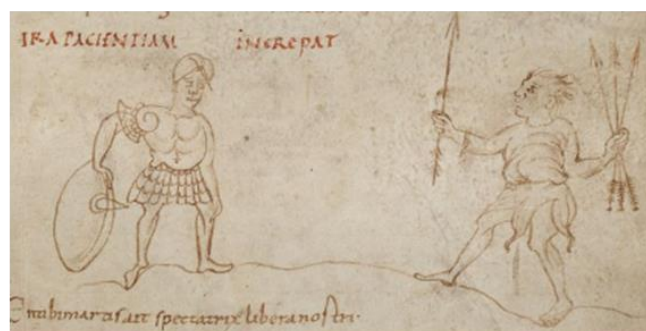 IRA PACIENTIAM INCREPAT
En tibi martis ait spectatrix libera nostri·